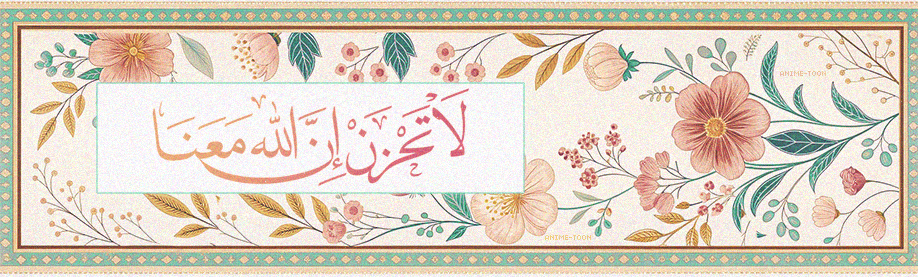 ANIME-TOON
لَا تَحْزَنْ إِنَّ اللَّهَ مَعَنَا
ANIME-TOON